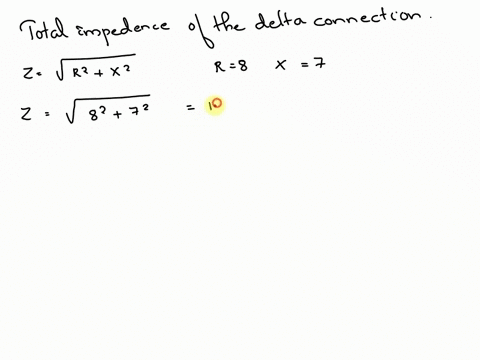 Total impedence of the delta connection.
Z = √R² + X² R = 8 X = 7
Z = √8² + 7² = 10